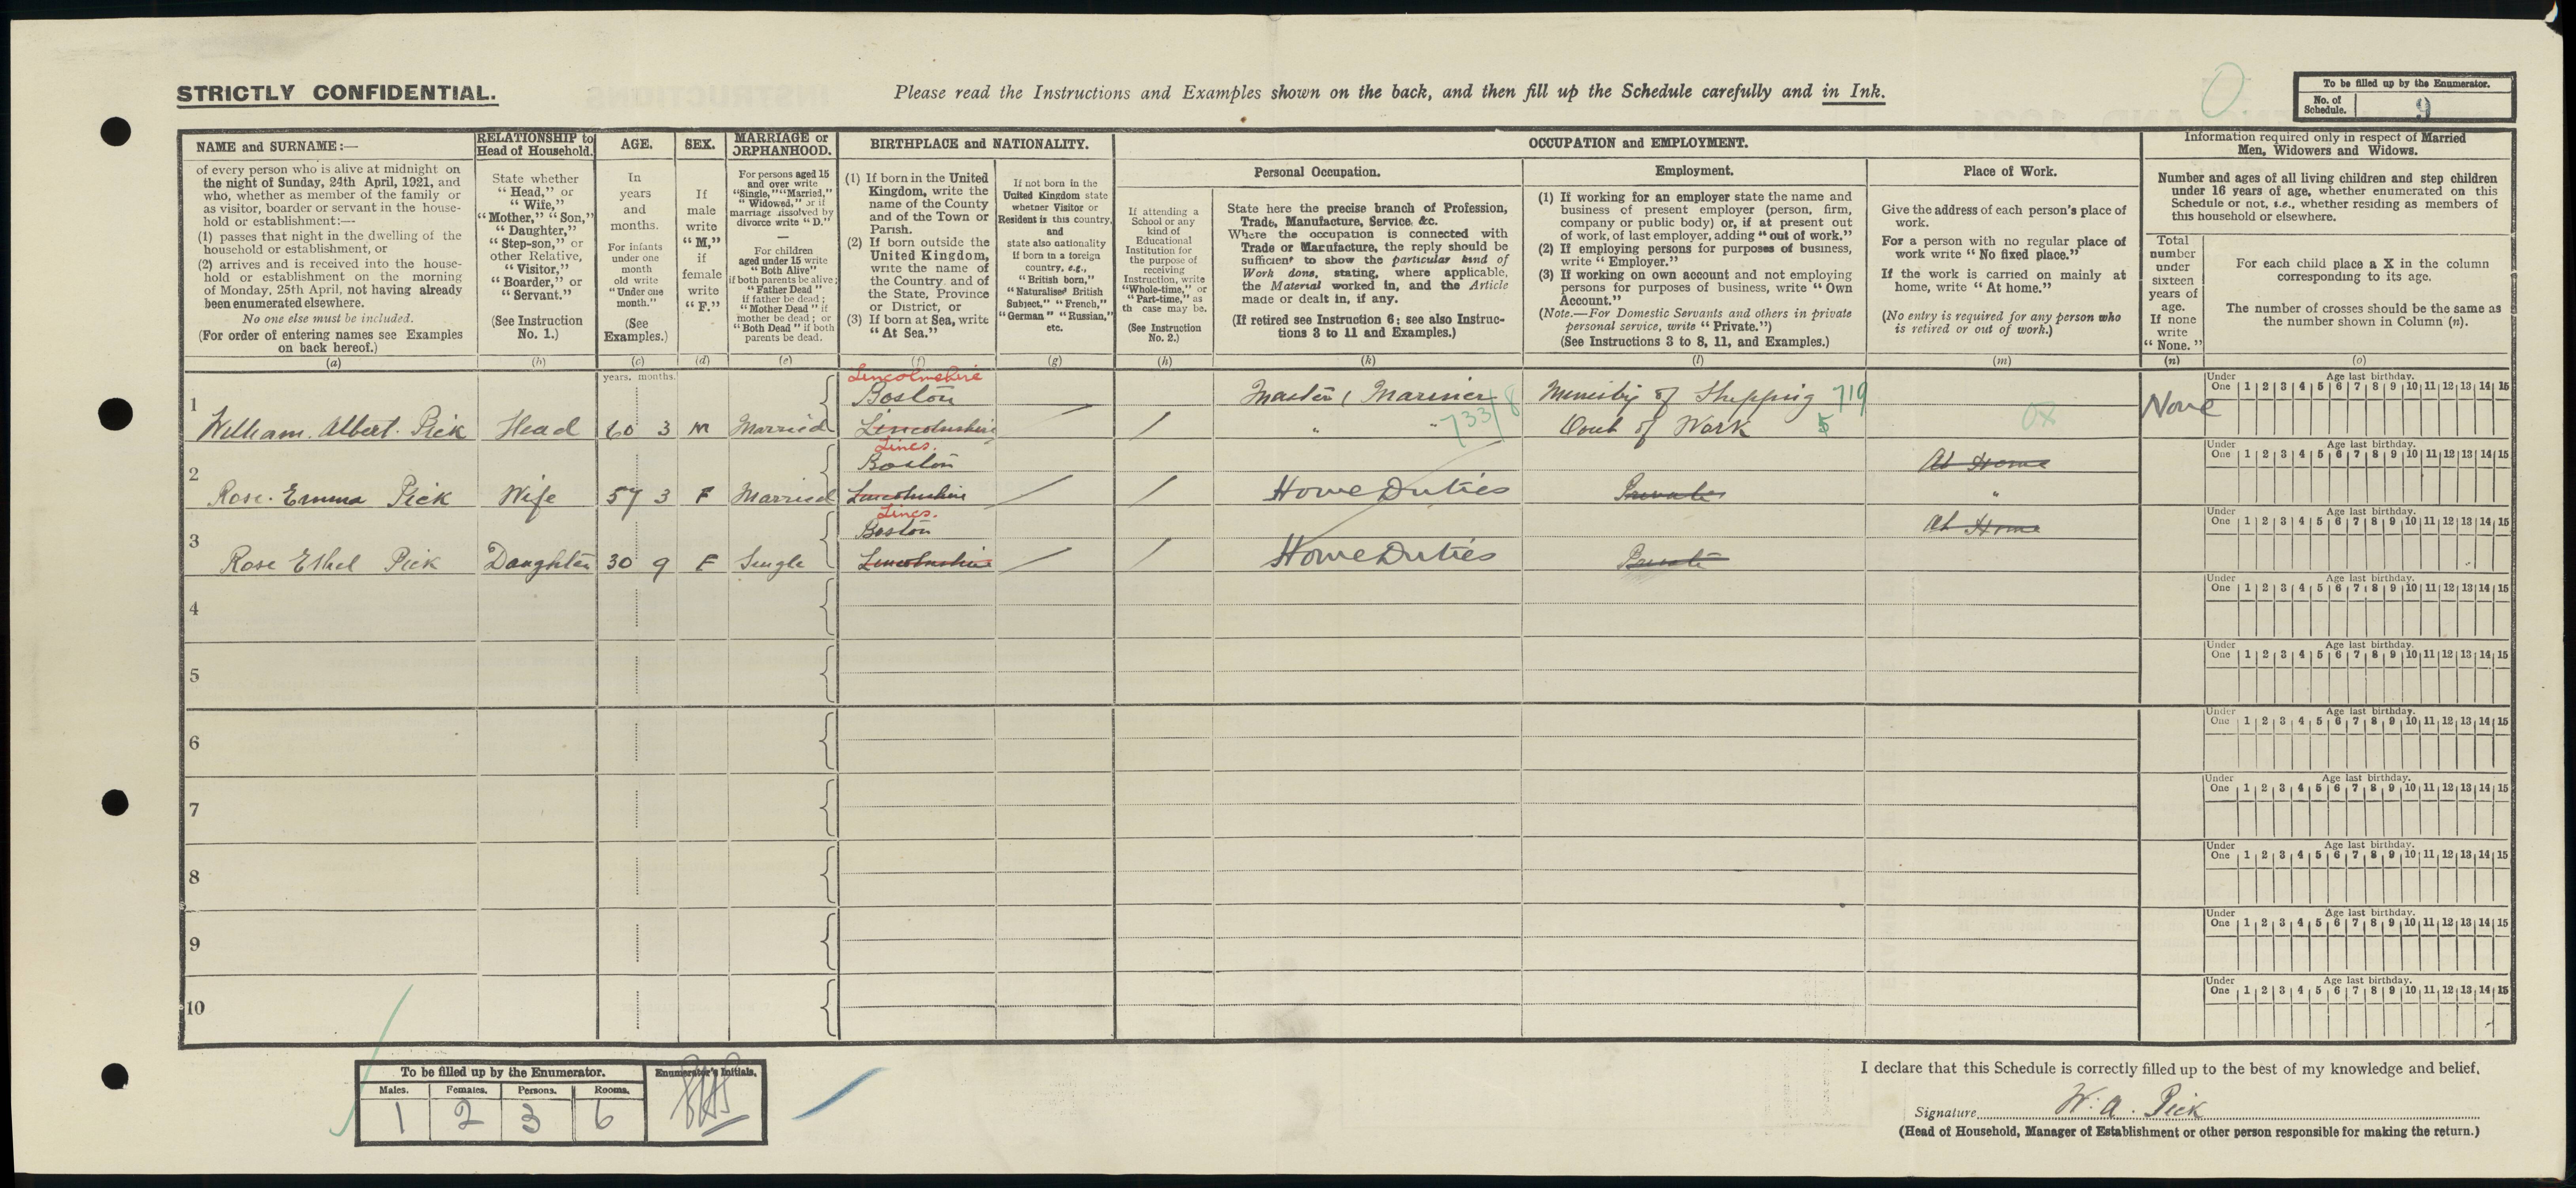 STRICTLY CONFIDENTIAL.
Please read the Instructions and Examples shown on the back, and then fill up the Schedule carefully and in Ink.
To be filled up by the Enumerator.
No. of Schedule. 9
NAME and SURNAME:—
of every person who is alive at midnight on
the night of Sunday, 24th April, 1921, and
who, whether as member of the family or
as visitor, boarder or servant in the house-
hold or establishment:—
(1) passes that night in the dwelling of the
household or establishment, or
(2) arrives and is received into the house-
hold or establishment on the morning
of Monday, 25th April, not having already
been enumerated elsewhere.
No one else must be included.
(For order of entering names see Examples
on back hereof.)
(a)
RELATIONSHIP to
Head of Household.
State whether
"Head," or
"Wife,"
"Mother," "Son,"
"Daughter,"
"Step-son," or
other Relative,
"Visitor,"
"Boarder," or
"Servant."
(See Instruction
No. 1.)
(b)
AGE.
In
years
and
months.
For infants
under one
month
old write
"Under one
month."
(See
Examples.)
(c)
SEX.
If
male
write
"M,"
if
female
write
"F."
(d)
MARRIAGE or
ORPHANHOOD.
For persons aged 15
and over write
"Single," "Married,"
"Widowed," or if
marriage dissolved by
divorce write "D."
For children
aged under 15 write
"Both Alive"
if both parents be alive;
"Father Dead"
if father be dead;
"Mother Dead" if
mother be dead; or
"Both Dead" if both
parents be dead.
(e)
BIRTHPLACE and NATIONALITY.
(1) If born in the United
Kingdom, write the
name of the County
and of the Town or
Parish.
(2) If born outside the
United Kingdom,
write the name of
the Country and of
the State, Province
or District, or
(3) If born at Sea, write
"At Sea."
(f)
If not born in the
United Kingdom state
whether Visitor or
Resident in this country,
and
state also nationality
if born in a foreign
country, e.g.,
"British born,"
"Naturalised British
Subject," "French,"
"German" "Russian,"
etc.
(g)
OCCUPATION and EMPLOYMENT.
If attending a
School or any
kind of
Educational
Institution for
the purpose of
receiving
Instruction, write
"Whole-time," or
"Part-time," as
th case may be.
(See Instruction
No. 2.)
(h)
Personal Occupation.
State here the precise branch of Profession,
Trade, Manufacture, Service, &c.
Where the occupation is connected with
Trade or Manufacture, the reply should be
sufficient to show the particular kind of
Work done, stating, where applicable,
the Material worked in, and the Article
made or dealt in, if any.
(If retired see Instruction 6; see also Instruc-
tions 3 to 11 and Examples.)
(k)
Employment.
(1) If working for an employer state the name and
business of present employer (person, firm,
company or public body) or, if at present out
of work, of last employer, adding "out of work."
(2) If employing persons for purposes of business,
write "Employer."
(3) If working on own account and not employing
persons for purposes of business, write "Own
Account."
(Note.—For Domestic Servants and others in private
personal service, write "Private.")
(See Instructions 3 to 8, 11, and Examples.)
(l)
Place of Work.
Give the address of each person's place of
work.
For a person with no regular place of
work write "No fixed place."
If the work is carried on mainly at
home, write "At home."
(No entry is required for any person who
is retired or out of work.)
(m)
Information required only in respect of Married
Men, Widowers and Widows.
Number and ages of all living children and step children
under 16 years of age, whether enumerated on this
Schedule or not, i.e., whether residing as members of
this household or elsewhere.
Total
number
under
sixteen
years of
age.
If none
write
"None."
(n)
For each child place a X in the column
corresponding to its age.
The number of crosses should be the same as
the number shown in Column (n).
(o)
years. months.
Lincolnshire
1 Boston Master Mariner Ministry of Shipping 719 None
William Albert Pick Head 60 3 M Married Lincolnshire " " 733/8 Out of Work 5 0X
Under One Age last birthday. 1 2 3 4 5 6 7 8 9 10 11 12 13 14 15
Lincs.
2 Boston At Home
Rose Emma Pick Wife 57 3 F Married Lincolnshire Home Duties Private "
Under One Age last birthday. 1 2 3 4 5 6 7 8 9 10 11 12 13 14 15
Lincs.
3 Boston At Home
Rose Ethel Pick Daughter 30 9 F Single Lincolnshire Home Duties Private
Under One Age last birthday. 1 2 3 4 5 6 7 8 9 10 11 12 13 14 15
4 Under One Age last birthday. 1 2 3 4 5 6 7 8 9 10 11 12 13 14 15
5 Under One Age last birthday. 1 2 3 4 5 6 7 8 9 10 11 12 13 14 15
6 Under One Age last birthday. 1 2 3 4 5 6 7 8 9 10 11 12 13 14 15
7 Under One Age last birthday. 1 2 3 4 5 6 7 8 9 10 11 12 13 14 15
8 Under One Age last birthday. 1 2 3 4 5 6 7 8 9 10 11 12 13 14 15
9 Under One Age last birthday. 1 2 3 4 5 6 7 8 9 10 11 12 13 14 15
10 Under One Age last birthday. 1 2 3 4 5 6 7 8 9 10 11 12 13 14 15
To be filled up by the Enumerator.
Enumerator's Initials.
Males. Females. Persons. Rooms.
1 2 3 6
I declare that this Schedule is correctly filled up to the best of my knowledge and belief.
Signature W. A. Pick
(Head of Household, Manager of Establishment or other person responsible for making the return.)